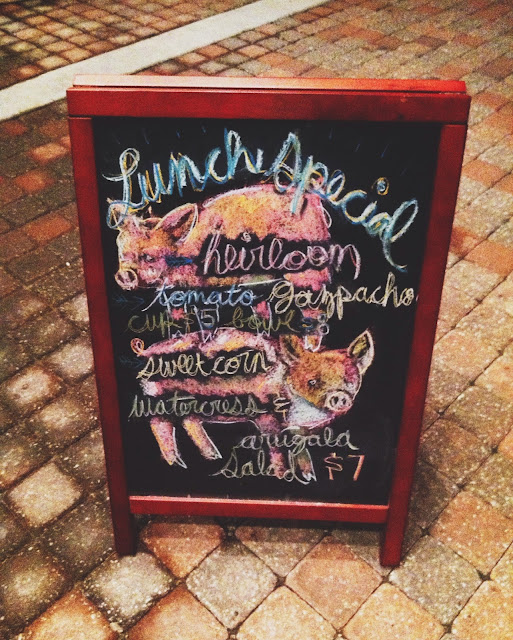 Lunch Special
heirloom
tomato gazpacho
cup $5 bowl $8
sweet corn
watercress &
arugala
salad $7